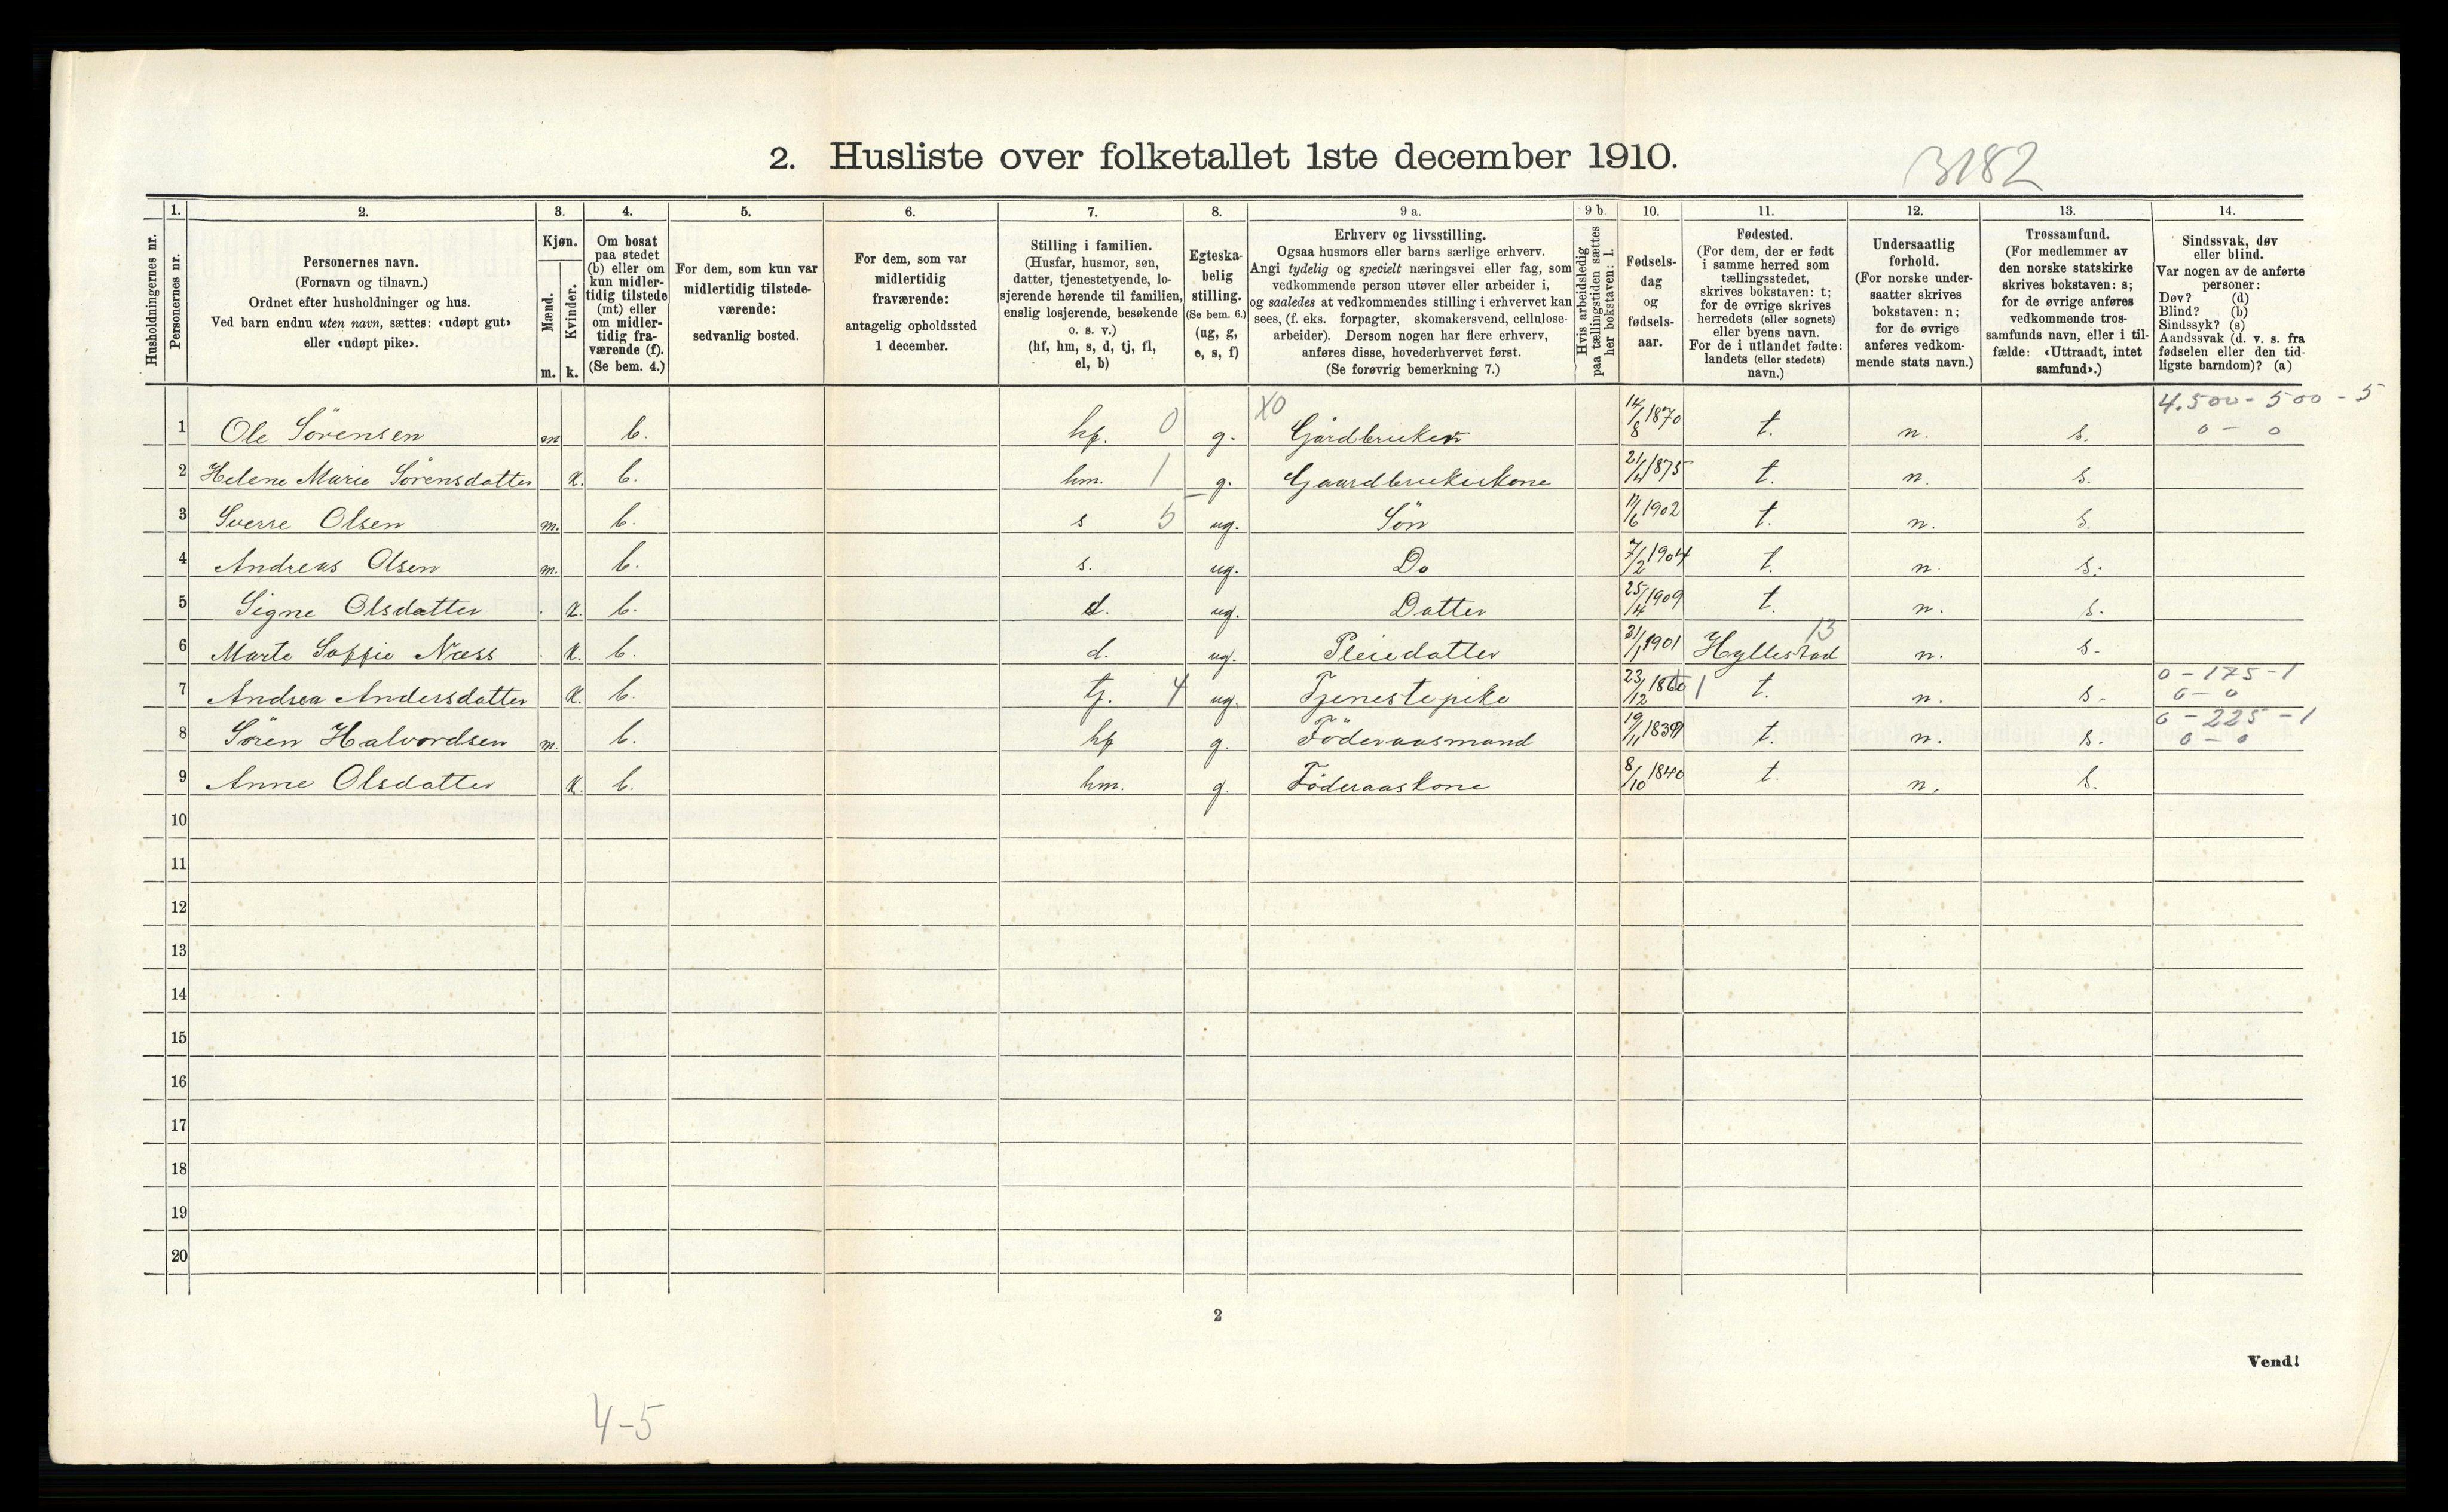 2. Husliste over folketallet 1ste december 1910.
3182
Husholdningernes nr.
1.
Personernes nr.
2.
Personernes navn.
(Fornavn og tilnavn.)
Ordnet efter husholdninger og hus.
Ved barn endnu uten navn, sættes: «udøpt gut»
eller «udøpt pike».
3.
Kjøn.
Mænd.
Kvinder.
m. k.
4.
Om bosat
paa stedet
(b) eller om
kun midler-
tidig tilstede
(mt) eller
om midler-
tidig fra-
værende (f).
(Se bem. 4.)
5.
For dem, som kun var
midlertidig tilstede-
værende:
sedvanlig bosted.
6.
For dem, som var
midlertidig
fraværende:
antagelig opholdssted
1 december.
7.
Stilling i familien.
(Husfar, husmor, søn,
datter, tjenestetyende, lo-
sjerende hørende til familien,
enslig losjerende, besøkende
o. s. v.)
(hf, hm, s, d, tj, fl,
el, b)
8.
Egteska-
belig
stilling.
(Se bem. 6.)
(ug, g,
e, s, f)
9 a.
Erhverv og livsstilling.
Ogsaa husmors eller barns særlige erhverv.
Angi tydelig og specielt næringsvei eller fag, som
vedkommende person utøver eller arbeider i,
og saaledes at vedkommendes stilling i erhvervet kan
sees, (f. eks. forpagter, skomakersvend, cellulose-
arbeider). Dersom nogen har flere erhverv,
anføres disse, hovederhvervet først.
(Se forøvrig bemerkning 7.)
9 b.
Hvis arbeidsledig
paa tællingstiden sættes
her bokstaven: l.
10.
Fødsels-
dag
og
fødsels-
aar.
11.
Fødested.
(For dem, der er født
i samme herred som
tællingsstedet,
skrives bokstaven: t;
for de øvrige skrives
herredets (eller sognets)
eller byens navn.
For de i utlandet fødte:
landets (eller stedets)
navn.)
12.
Undersaatlig
forhold.
(For norske under-
saatter skrives
bokstaven: n;
for de øvrige
anføres vedkom-
mende stats navn.)
13.
Trossamfund.
(For medlemmer av
den norske statskirke
skrives bokstaven: s;
for de øvrige anføres
vedkommende tros-
samfunds navn, eller i til-
fælde: «Uttraadt, intet
samfund».)
14.
Sindssvak, døv
eller blind.
Var nogen av de anførte
personer:
Døv? (d)
Blind? (b)
Sindssyk? (s)
Aandssvak (d. v. s. fra
fødselen eller den tid-
ligste barndom)? (a)
1 Ole Sörensen m b. hf. 0 g. X0 Gårdbruker 14/8 1870 t. n. s. 4.500 - 500 - 5
0 - 0
2 Helene Marie Sörensdatter k. b. hm. 1 g. Gaardbrukerkone 21/4 1875 t. n. s.
3 Sverre Olsen m. b. s 5 ug. Sön 11/6 1902 t. n. s.
4 Andreas Olsen m. b. s. ug. Do 7/2 1904 t. n. s.
5 Signe Olsdatter k. b. d. ug. Datter 25/4 1909 t. n. s.
6 Marte Soffie Næss k. b. d. ug. Pleiedatter 31/1 1901 Hyllestad 13 n. s.
7 Andrea Andersdatter k. b. tj. 4 ug. Tjenestepike 23/12 1860 1 t. n. s. 0 - 175 - 1
0 - 0
8 Sören Halvordsen m. b. hf g. Föderaasmand 19/11 1839 t. n. s. 0 - 225 - 1
0 - 0
9 Anne Olsdatter k. b. hm. g. Föderaaskone 8/10 1840 t. n. s.
10
11
12
13
14
15
16
17
18
19
20
2
Vend!
4-5